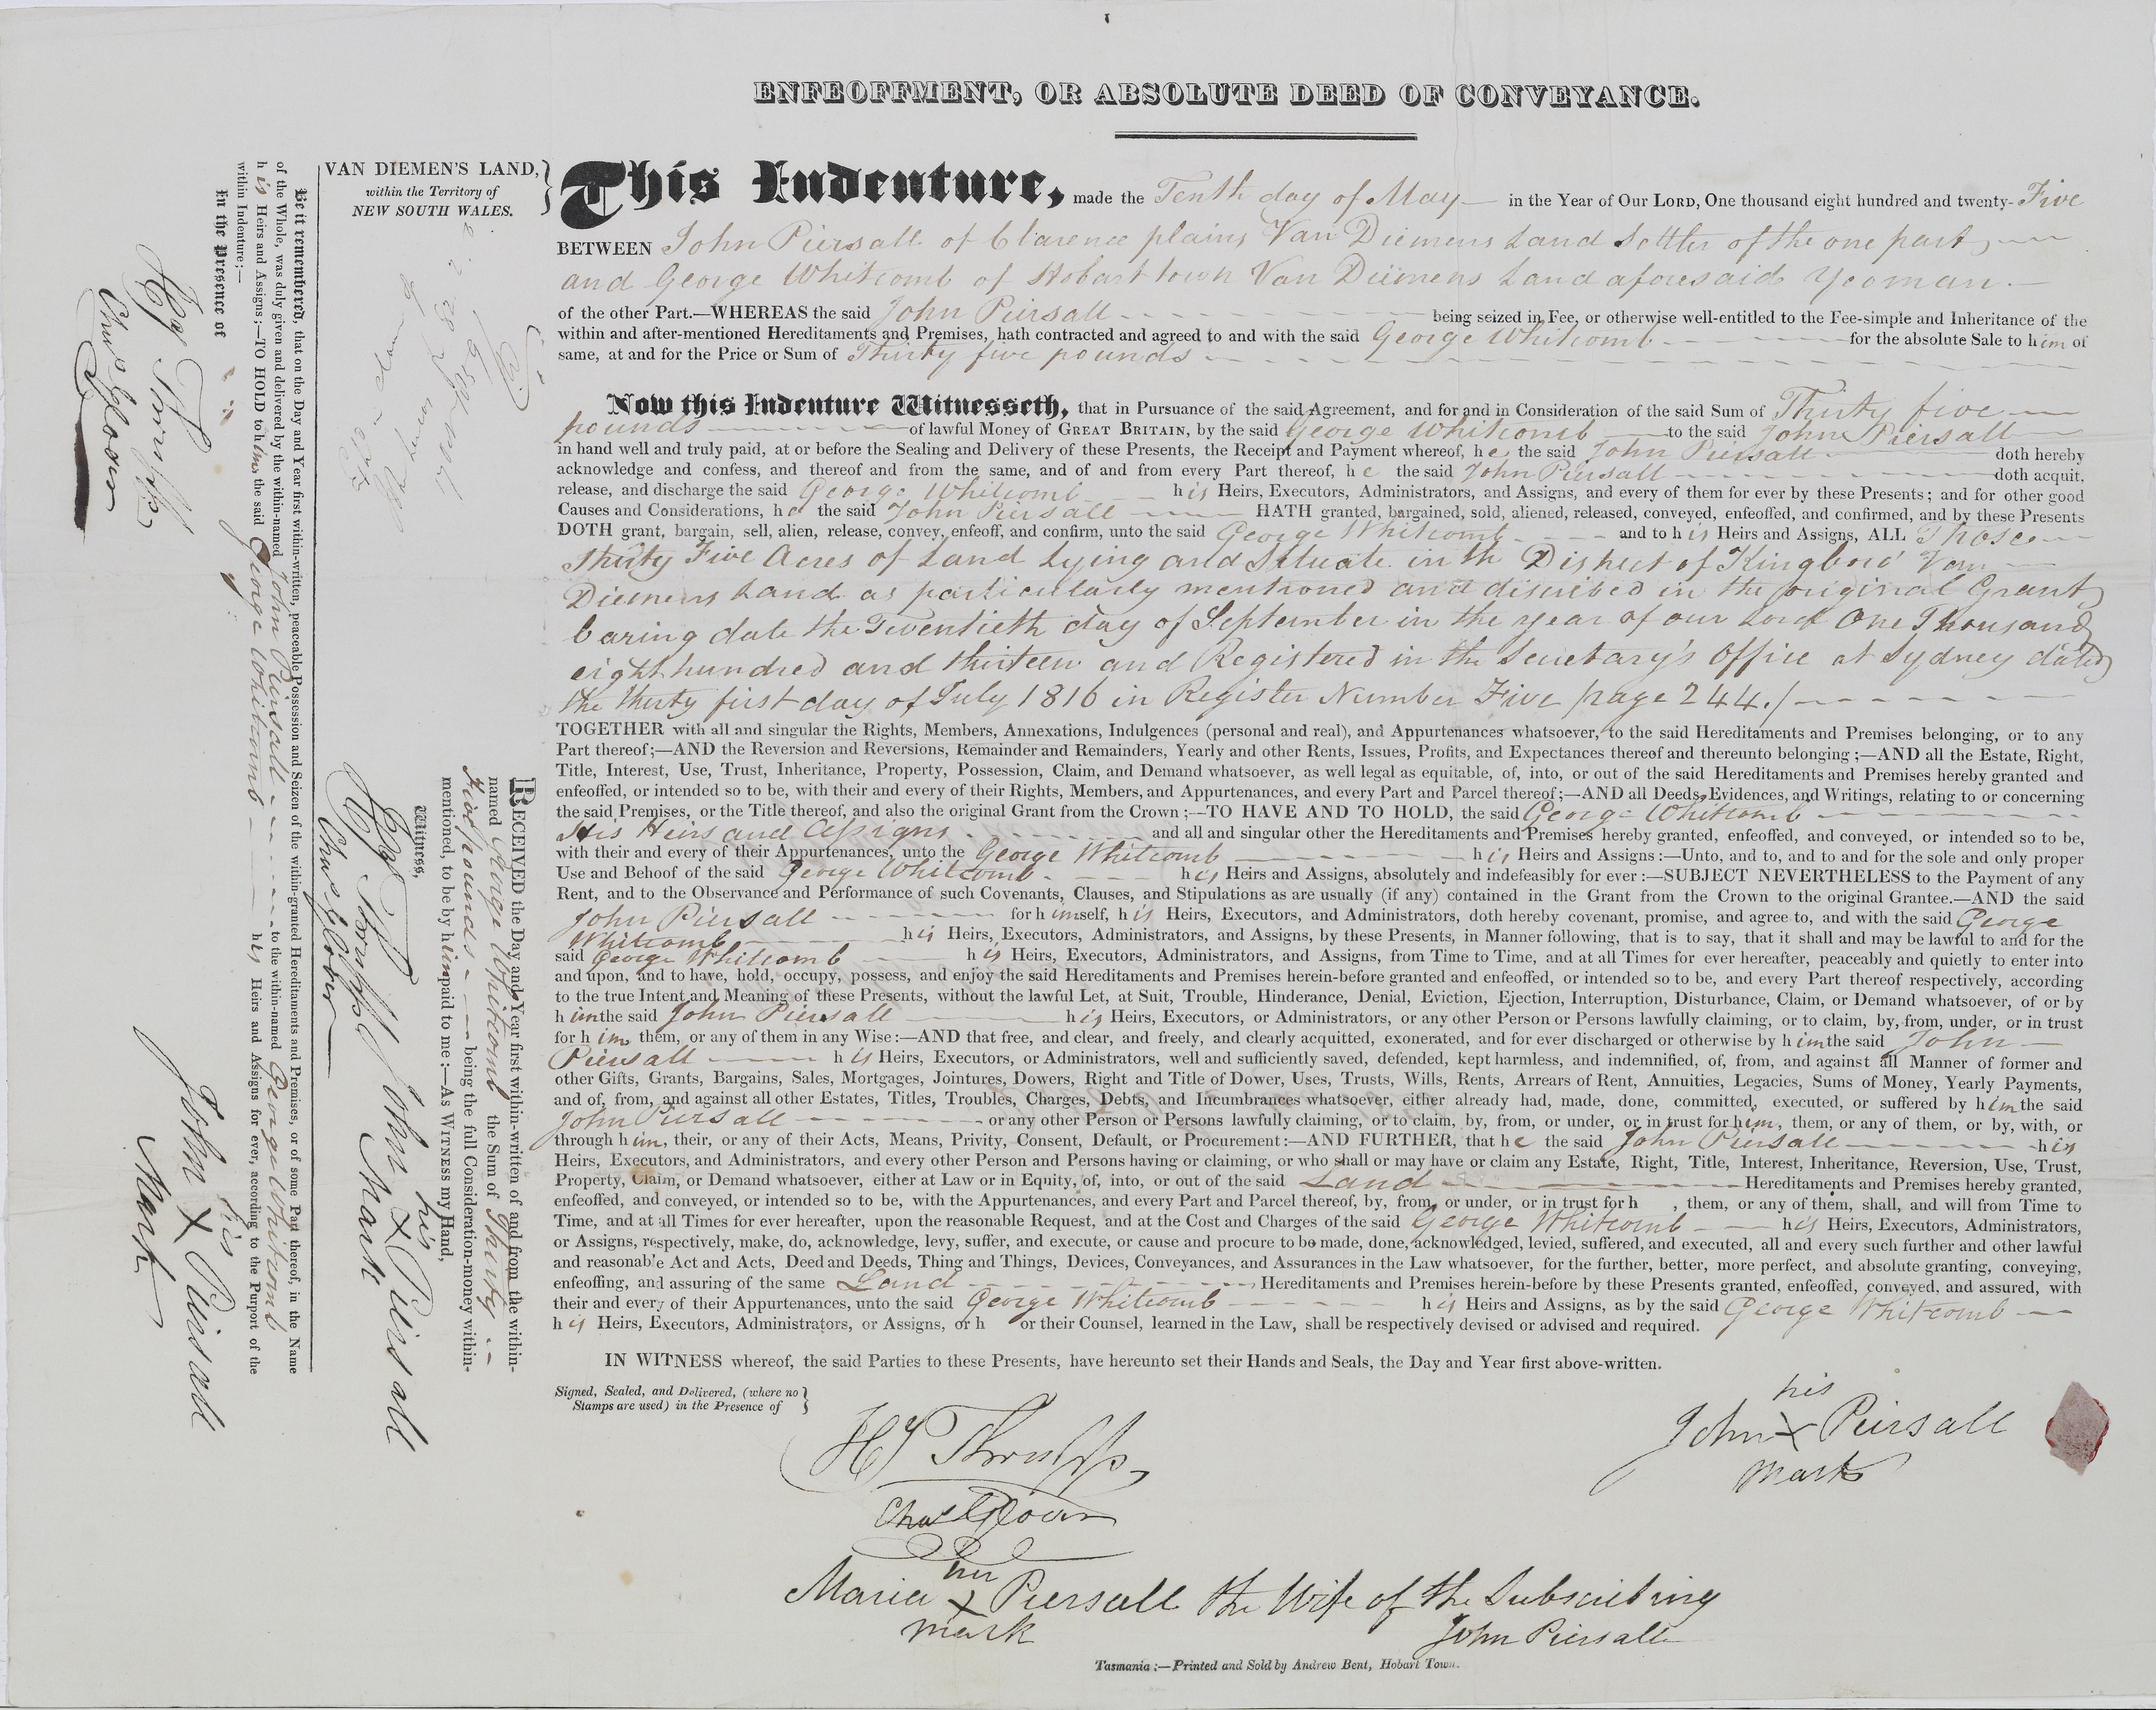 ENFEOFFMENT, OR ABSOLUTE DEED OF CONVEYANCE.
VAN DIEMEN'S LAND,
within the Territory of
NEW SOUTH WALES.
This Indenture, made the Tenth day of May in the Year of Our LORD, One thousand eight hundred and twenty-Five
BETWEEN John Piersall of Clarence plains Van Diemens Land Settler of the one part,
and George Whitcomb of Hobart town Van Diemens Land aforesaid Yeoman.
of the other Part.—WHEREAS the said John Piersall being seized in Fee, or otherwise well-entitled to the Fee-simple and Inheritance of the
within and after-mentioned Hereditaments and Premises, hath contracted and agreed to and with the said George Whitcomb for the absolute Sale to him of
same, at and for the Price or Sum of Thirty five pounds
Now this Indenture Witnesseth, that in Pursuance of the said Agreement, and for and in Consideration of the said Sum of Thirty five
pounds of lawful Money of GREAT BRITAIN, by the said George Whitcomb to the said John Piersall
in hand well and truly paid, at or before the Sealing and Delivery of these Presents, the Receipt and Payment whereof, he the said John Piersall doth hereby
acknowledge and confess, and thereof and from the same, and of and from every Part thereof, he the said John Piersall doth acquit,
release, and discharge the said George Whitcomb his Heirs, Executors, Administrators, and Assigns, and every of them for ever by these Presents; and for other good
Causes and Considerations, he the said John Piersall HATH granted, bargained, sold, aliened, released, conveyed, enfeoffed, and confirmed, and by these Presents
DOTH grant, bargain, sell, alien, release, convey, enfeoff, and confirm, unto the said George Whitcomb and to his Heirs and Assigns, ALL Those
Thirty Five Acres of Land Lying and Situate in th District of Kingboro' Van
Diemens Land as particularly mentioned and discribed in the original Grant
baring date the Twentieth day of September in the year of our Lord One Thousand
eight hundred and thirteen and Registered in the Secretary's Office at Sydney dated
the thirty first day of July 1816 in Register Number Five page 244./
TOGETHER with all and singular the Rights, Members, Annexations, Indulgences (personal and real), and Appurtenances whatsoever, to the said Hereditaments and Premises belonging, or to any
Part thereof;—AND the Reversion and Reversions, Remainder and Remainders, Yearly and other Rents, Issues, Profits, and Expectances thereof and thereunto belonging;—AND all the Estate, Right,
Title, Interest, Use, Trust, Inheritance, Property, Possession, Claim, and Demand whatsoever, as well legal as equitable, of, into, or out of the said Hereditaments and Premises hereby granted and
enfeoffed, or intended so to be, with their and every of their Rights, Members, and Appurtenances, and every Part and Parcel thereof;—AND all Deeds, Evidences, and Writings, relating to or concerning
the said Premises, or the Title thereof, and also the original Grant from the Crown;—TO HAVE AND TO HOLD, the said George Whitcomb
His Heirs and Assigns and all and singular other the Hereditaments and Premises hereby granted, enfeoffed, and conveyed, or intended so to be,
with their and every of their Appurtenances, unto the George Whitcomb his Heirs and Assigns:—Unto, and to, and to and for the sole and only proper
Use and Behoof of the said George Whitcomb his Heirs and Assigns, absolutely and indefeasibly for ever:—SUBJECT NEVERTHELESS to the Payment of any
Rent, and to the Observance and Performance of such Covenants, Clauses, and Stipulations as are usually (if any) contained in the Grant from the Crown to the original Grantee.—AND the said
John Piersall for himself, his Heirs, Executors, and Administrators, doth hereby covenant, promise, and agree to, and with the said George
Whitcomb his Heirs, Executors, Administrators, and Assigns, by these Presents, in Manner following, that is to say, that it shall and may be lawful to and for the
said George Whitcomb his Heirs, Executors, Administrators, and Assigns, from Time to Time, and at all Times for ever hereafter, peaceably and quietly to enter into
and upon, and to have, hold, occupy, possess, and enjoy the said Hereditaments and Premises herein-before granted and enfeoffed, or intended so to be, and every Part thereof respectively, according
to the true Intent and Meaning of these Presents, without the lawful Let, at Suit, Trouble, Hinderance, Denial, Eviction, Ejection, Interruption, Disturbance, Claim, or Demand whatsoever, of or by
him the said John Piersall his Heirs, Executors, or Administrators, or any other Person or Persons lawfully claiming, or to claim, by, from, under, or in trust
for him them, or any of them in any Wise:—AND that free, and clear, and freely, and clearly acquitted, exonerated, and for ever discharged or otherwise by him the said John
Piersall his Heirs, Executors, or Administrators, well and sufficiently saved, defended, kept harmless, and indemnified, of, from, and against all Manner of former and
other Gifts, Grants, Bargains, Sales, Mortgages, Jointures, Dowers, Right and Title of Dower, Uses, Trusts, Wills, Rents, Arrears of Rent, Annuities, Legacies, Sums of Money, Yearly Payments,
and of, from, and against all other Estates, Titles, Troubles, Charges, Debts, and Incumbrances whatsoever, either already had, made, done, committed, executed, or suffered by him the said
John Piersall or any other Person or Persons lawfully claiming, or to claim, by, from, or under, or in trust for him, them, or any of them, or by, with, or
through him, their, or any of their Acts, Means, Privity, Consent, Default, or Procurement:—AND FURTHER, that he the said John Piersall his
Heirs, Executors, and Administrators, and every other Person and Persons having or claiming, or who shall or may have or claim any Estate, Right, Title, Interest, Inheritance, Reversion, Use, Trust,
Property, Claim, or Demand whatsoever, either at Law or in Equity, of, into, or out of the said Land Hereditaments and Premises hereby granted,
enfeoffed, and conveyed, or intended so to be, with the Appurtenances, and every Part and Parcel thereof, by, from, or under, or in trust for h , them, or any of them, shall, and will from Time to
Time, and at all Times for ever hereafter, upon the reasonable Request, and at the Cost and Charges of the said George Whitcomb his Heirs, Executors, Administrators,
or Assigns, respectively, make, do, acknowledge, levy, suffer, and execute, or cause and procure to be made, done, acknowledged, levied, suffered, and executed, all and every such further and other lawful
and reasonable Act and Acts, Deed and Deeds, Thing and Things, Devices, Conveyances, and Assurances in the Law whatsoever, for the further, better, more perfect, and absolute granting, conveying,
enfeoffing, and assuring of the same Land Hereditaments and Premises herein-before by these Presents granted, enfeoffed, conveyed, and assured, with
their and every of their Appurtenances, unto the said George Whitcomb his Heirs and Assigns, as by the said George Whitcomb
his Heirs, Executors, Administrators, or Assigns, or h or their Counsel, learned in the Law, shall be respectively devised or advised and required.
IN WITNESS whereof, the said Parties to these Presents, have hereunto set their Hands and Seals, the Day and Year first above-written.
Signed, Sealed, and Delivered, (where no
Stamps are used) in the Presence of
his
John X Peirsall
mark
Hy Thrupp
Chas Glover
her
Maria X Piersall the Wife of the Subscribing
mark John Piersall
Tasmania:—Printed and Sold by Andrew Bent, Hobart Town.
RECEIVED the Day and Year first within-written of and from the within-
named George Whitcomb the Sum of Thirty
Five pounds being the full Consideration-money within-
mentioned, to be by him paid to me:—As WITNESS my Hand,
Witness,
his
John X Peirsall
mark
Hy Thrupp
Chas Glover
Be it remembered, that on the Day and Year first within-written, peaceable Possession and Seizen of the within-granted Hereditaments and Premises, or of some Part thereof, in the Name
of the Whole, was duly given and delivered by the within-named John Piersall to the within-named George Whitcomb
his Heirs and Assigns;—TO HOLD to him the said George Whitcomb his Heirs and Assigns for ever, according to the Purport of the
within Indenture;—
In the Presence of
his
John X Peirsall
Mark
Hy Thrupp
Chas Glover